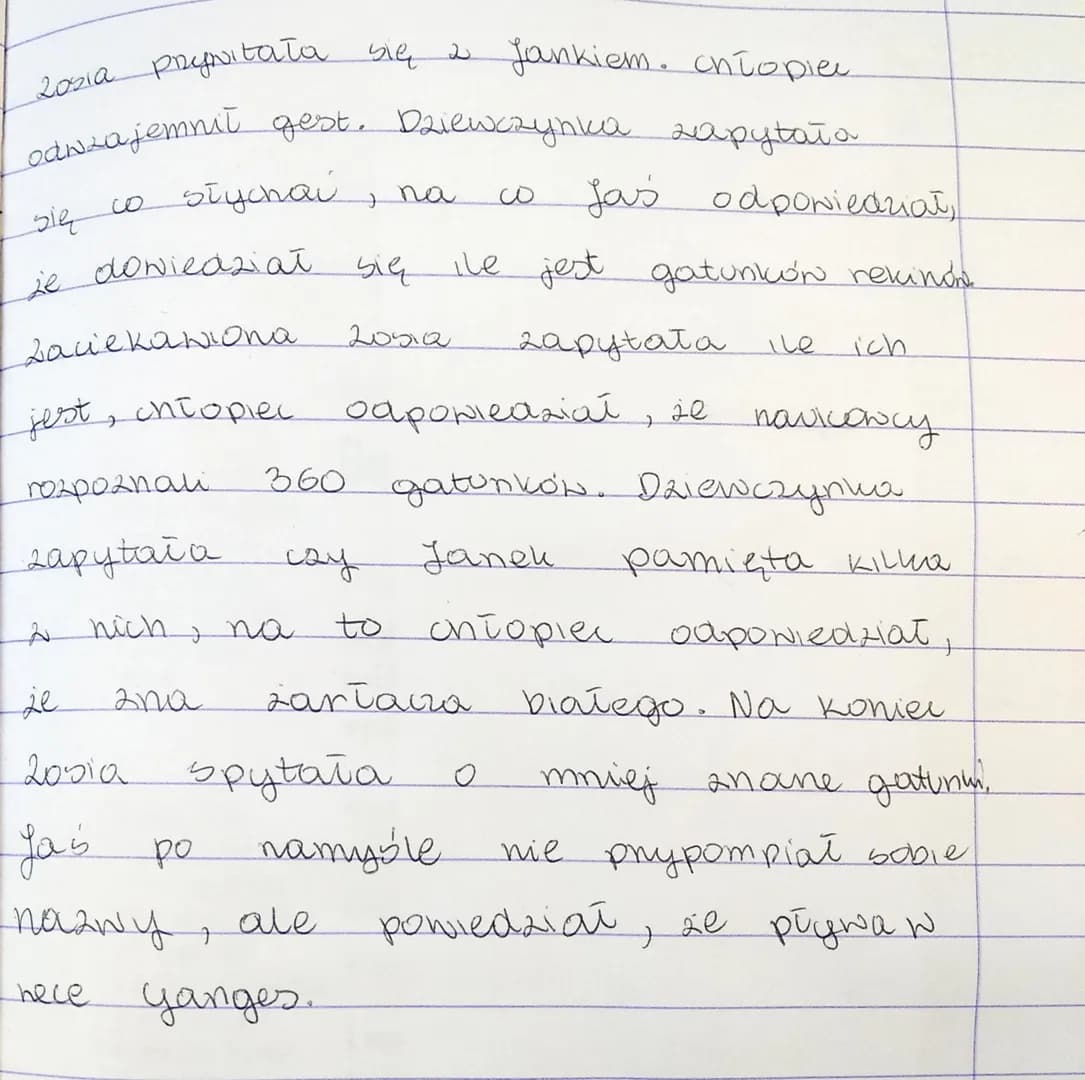 Zosia przywitała się z Jankiem. Chłopiec
odwzajemnił gest. Dziewczynka zapytała
się co słychać, na co Jaś odpowiedział,
że dowiedział się ile jest gatunków rekinów.
Zaciekawiona Zosia zapytała ile ich
jest, chłopiec odpowiedział, że naukowcy
rozpoznali 360 gatunków. Dziewczynka
zapytała czy Janek pamięta kilka
z nich, na to chłopiec odpowiedział,
że zna żarłacza białego. Na koniec
Zosia spytała o mniej znane gatunki.
Jaś po namyśle nie przypompiał sobie
nazwy, ale powiedział, że pływa w
rzece Ganges.